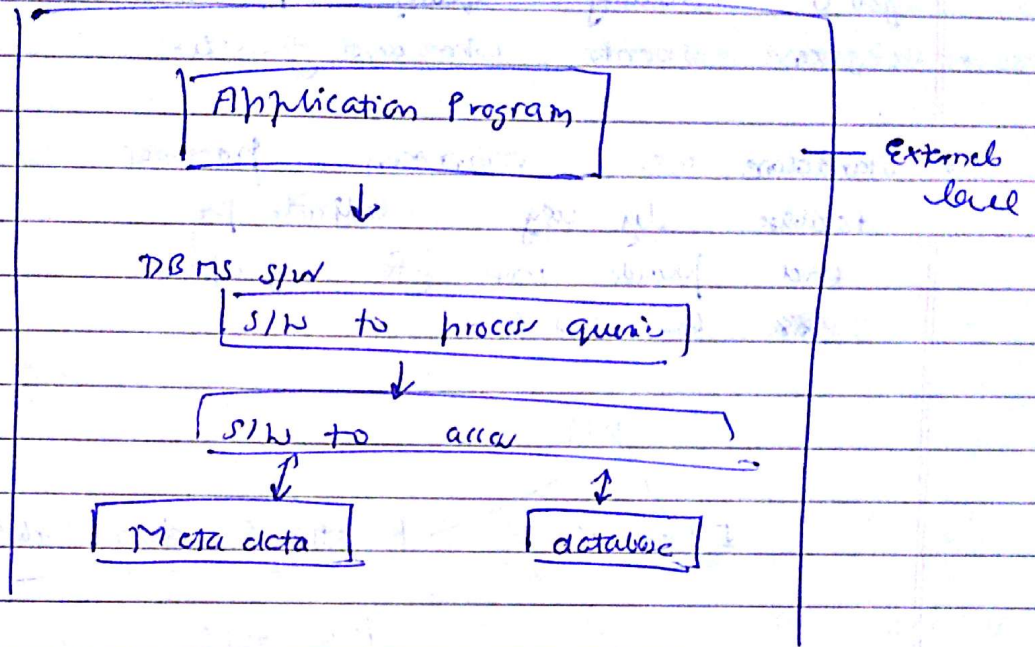 Application Program
External
level
DBMS S/W
S/W to process queries
S/W to access
Meta data
database